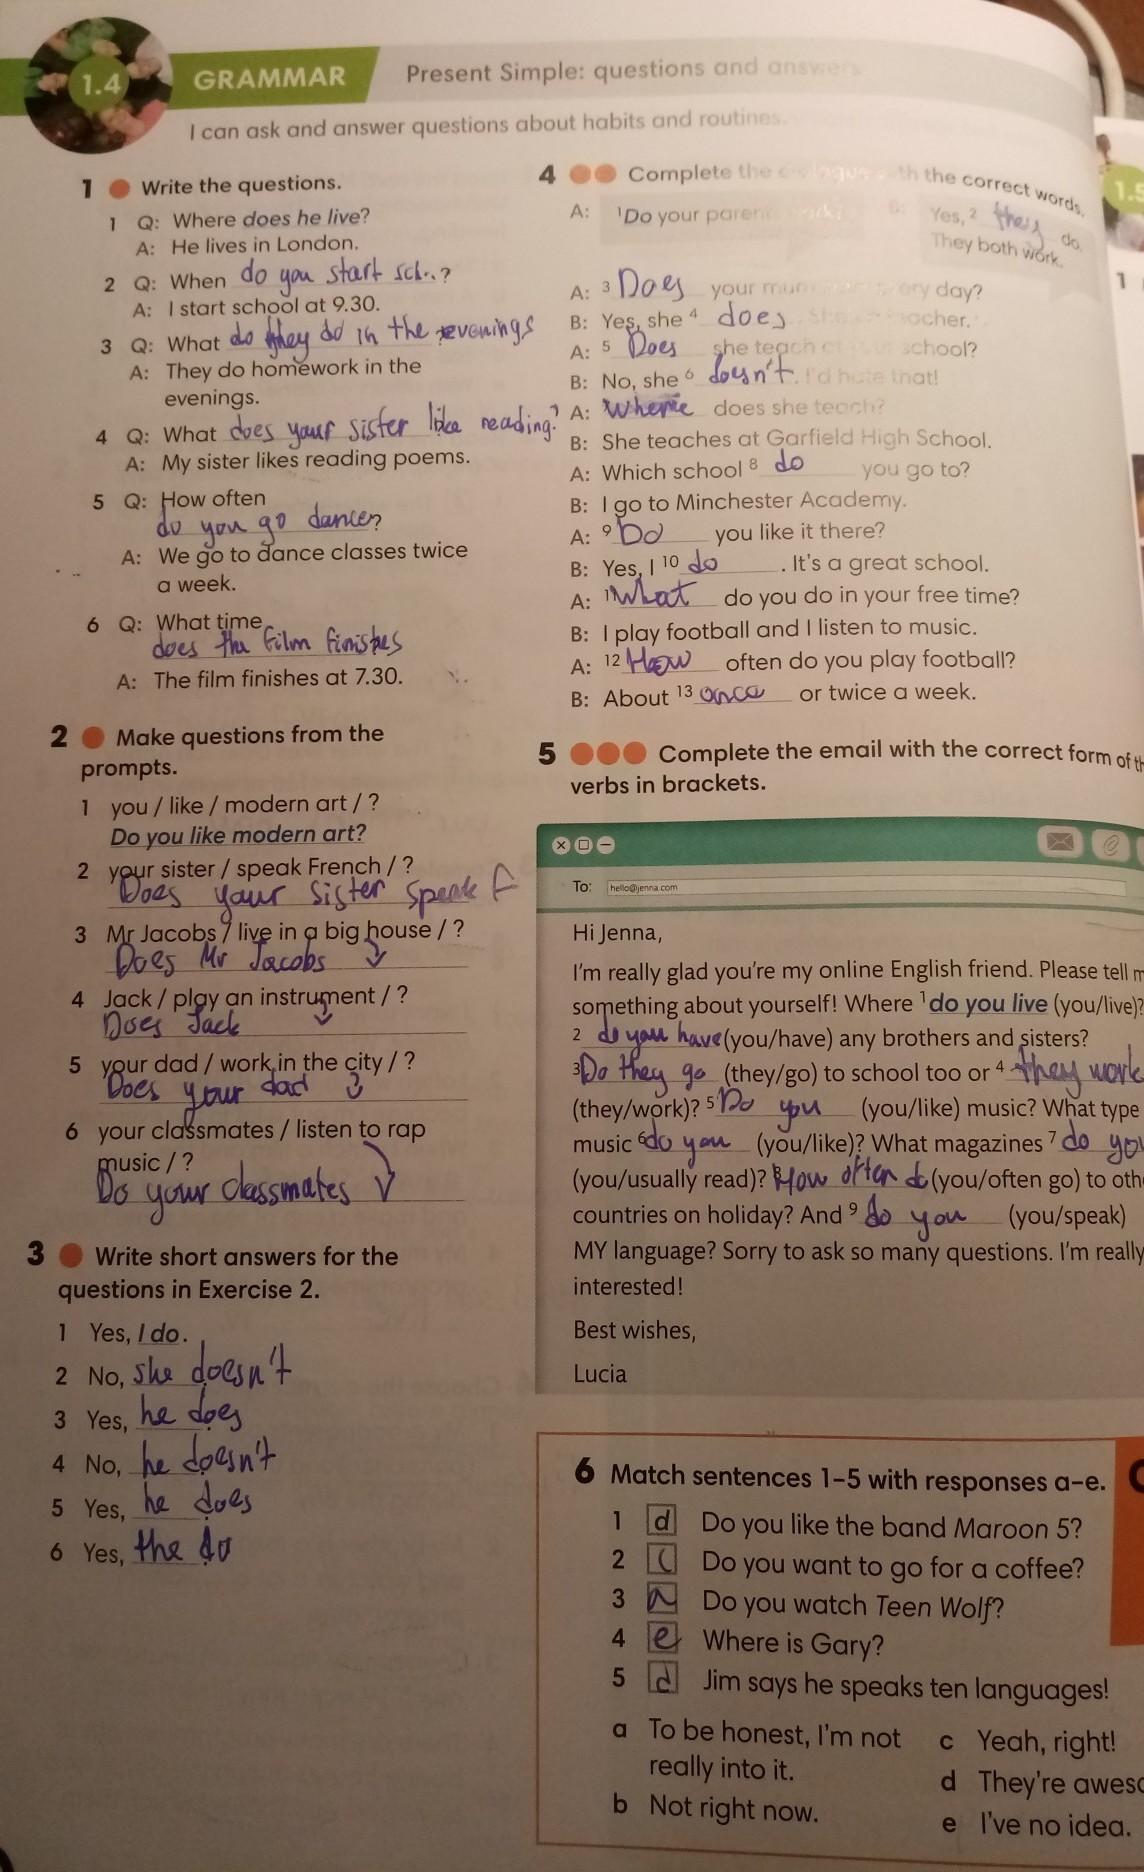 1.4 GRAMMAR Present Simple: questions and answers
I can ask and answer questions about habits and routines.
1 Write the questions.
1 Q: Where does he live?
A: He lives in London.
2 Q: When do you start sch..?
A: I start school at 9.30.
3 Q: What do they do in the evenings
A: They do homework in the
evenings.
4 Q: What does your sister like reading?
A: My sister likes reading poems.
5 Q: How often
do you go dance?
A: We go to dance classes twice
a week.
6 Q: What time
does the film finishes
A: The film finishes at 7.30.
2 Make questions from the
prompts.
1 you / like / modern art / ?
Do you like modern art?
2 your sister / speak French / ?
Does your sister speak F
3 Mr Jacobs / live in a big house / ?
Does Mr Jacobs
4 Jack / play an instrument / ?
Does Jack
5 your dad / work in the city / ?
Does your dad
6 your classmates / listen to rap
music / ?
Do your classmates
3 Write short answers for the
questions in Exercise 2.
1 Yes, I do.
2 No, she doesn't
3 Yes, he does
4 No, he doesn't
5 Yes, he does
6 Yes, the do
4 Complete the with the correct words.
A: 1 Do your B: Yes, 2 they do.
They both work.
A: 3 Does your day?
B: Yes, she 4 does.
A: 5 Does she teach school?
B: No, she 6 doesn't. I'd hate that!
A: 7 Where does she teach?
B: She teaches at Garfield High School.
A: Which school 8 do you go to?
B: I go to Minchester Academy.
A: 9 Do you like it there?
B: Yes, I 10 do. It's a great school.
A: 11 What do you do in your free time?
B: I play football and I listen to music.
A: 12 How often do you play football?
B: About 13 once or twice a week.
5 Complete the email with the correct form of
verbs in brackets.
To: hello@jenna.com
Hi Jenna,
I'm really glad you're my online English friend. Please tell
something about yourself! Where 1 do you live (you/live)?
2 do you have (you/have) any brothers and sisters?
3 Do they go (they/go) to school too or 4 they work
(they/work)? 5 Do you (you/like) music? What type
music 6 do you (you/like)? What magazines 7 do you
(you/usually read)? 8 How often do (you/often go) to
countries on holiday? And 9 do you (you/speak)
MY language? Sorry to ask so many questions. I'm really
interested!
Best wishes,
Lucia
6 Match sentences 1–5 with responses a–e.
1 d Do you like the band Maroon 5?
2 c Do you want to go for a coffee?
3 a Do you watch Teen Wolf?
4 e Where is Gary?
5 d Jim says he speaks ten languages!
a To be honest, I'm not
really into it.
b Not right now.
c Yeah, right!
d They're
e I've no idea.
1.5
1